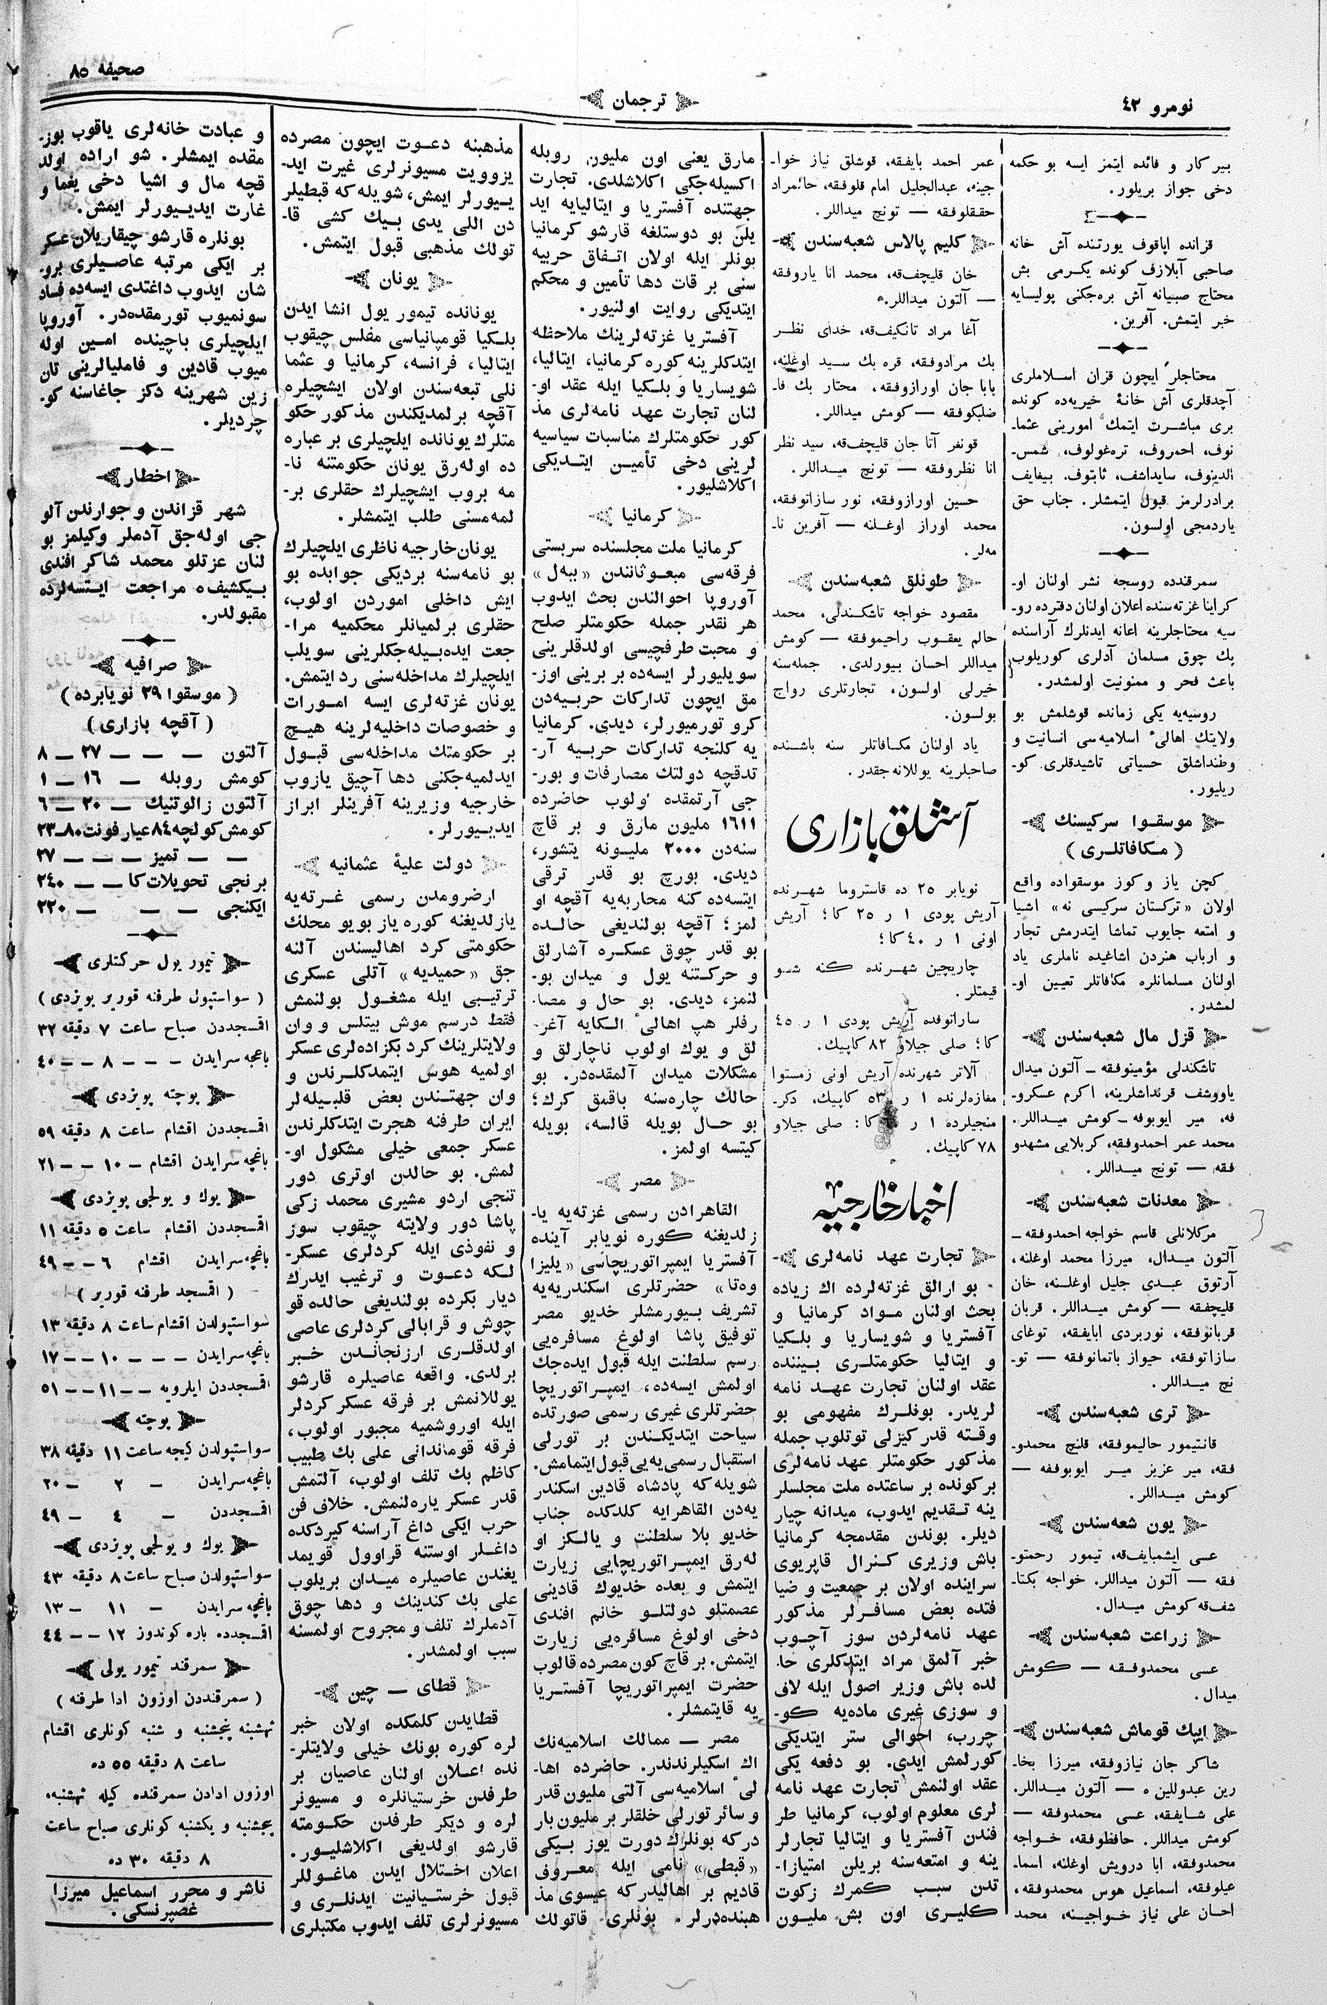 نومرو ٤٢
ترجمان
صحيفه ٨٥
بير كار و فائده ايتمز ايسه بو حكمه
دخى جواز بريلور.
قزانده اپاقوف يورتنده آش خانه
صاحبى آبلازف كونده يكرمى بش
محتاج صبيانه آش بره‌جكنى پوليسايه
خبر ايتمش. آفرين.
محتاجلر ايچون قزان اسلاملرى
آچدقلرى آش خانۀ خيريه‌ده كونده
برى مباشرت ايتمك امورينى عثما-
نوف، احمروف، تره‌غولوف، شمس-
الدينوف، سايداشف، ثابتوف، بيفايف
برادرلرمز قبول ايتمشلر. جناب حق
ياردمجى اولسون.
سمرقندده روسجه نشر اولنان او-
كراينا غزته‌سنده اعلان اولنان دفترده رو-
سيه محتاجلرينه اعانه ايدنلرك آراسنده
پك چوق مسلمان آدلرى كوريلوب
باعث فخر و ممنونيت اولمشدر.
روسيه‌يه يكى زمانده قوشلمش بو
ولايتك اهالىء اسلاميه‌سى انسانيت و
وطنداشلق حسياتى تاشيدقلرى كو-
ريليور.
موسقوا سركيسنك
( مكافاتلرى )
كچن ياز و كوز موسقواده واقع
اولان «تركستان سركيسى نه» اشيا
و امتعه جايوب تماشا ايتدرمش تجار
و ارباب هنردن اشاغيده ناملرى ياد
اولنان مسلمانلره مكافاتلر تعيين او-
لمشدر.
قزل مال شعبه‌سندن
تاشكندلى مؤمينوفقه ــ آلتون ميدال
ياووشف قرنداشلرينه، اكرم عسكرو-
فه، مير ايوبوفه ــ كومش ميداللر.
محمد عمر احمدوفقه، كربلايى مشهدو
فقه — تونج ميداللر.
معدنات شعبه‌سندن
مركلانلى قاسم خواجه احمدوفقه ــ
آلتون ميدال، ميرزا محمد اوغلنه،
آرتوق عبدى جليل اوغلنه، خان
قليچفقه — كومش ميداللر. قربان
قربانوفقه، نوربردى ابايفقه، توغاى
سازاتوفقه، حيواز باتمانوفقه — تو-
نج ميداللر.
ترى شعبه‌سندن
قانتيمور حاليموفقه، قلنچ محمدو-
فقه، مير عزيز مير ايوبوفقه —
كومش ميداللر.
يون شعبه‌سندن
عسى ايشمايف‌قه، تيمور رحمتو-
فقه — آلتون ميداللر. خواجه بكتا-
شف‌قه كومش ميدال.
زراعت شعبه‌سندن
عسى محمدوفقه — كومش
ميدال.
ايپك قوماش شعبه‌سندن
شاكر جان نيازوفقه، ميرزا بخا-
رين عبدوللين ه — آلتون ميداللر.
على شايفقه، عسى محمدوفقه —
كومش ميداللر. حافظوفقه، خواجه
محمدوفقه، ابا درويش اوغلنه، اسما-
عيلوفقه، اسماعيل هوس محمدوفقه،
احسان على نياز خواجينه، محمد
عمر احمد بايفقه، قوشلق نياز خوا-
جينه، عبدالجليل امام قلوفقه، حانمراد
حقنقلوفقه — تونج ميداللر.
كليم پالاس شعبه‌سندن
خان قليچف‌قه، محمد انا ياروفقه
— آلتون ميداللر.
آغا مراد تانكيف‌قه، خداى نظر
بك مرادوفقه، قره بك سيد اوغلنه،
بابا جان اورازوفقه، محتار بك فا-
ضلبكوفقه — كومش ميداللر.
قونفر آتا جان قليچف‌قه، سيد نظر
انا نظروفقه — تونج ميداللر.
حسين اورازوفقه، نور سازاتوفقه،
محمد اوراز اوغلنه — آفرين نا-
مه‌لر.
طونلق شعبه‌سندن
مقصود خواجه تاشكندلى، محمد
حالم يعقوب راحيموفقه — كومش
ميداللر احسان بيورلدى. جمله‌سنه
خيرلى اولسون، تجارتلرى رواج
بولسون.
ياد اولنان مكافاتلر سنه باشنده
صاحبلرينه يوللانه‌جقدر.
آشلق بازارى
نويابر ٢٥ ده قاستروما شهرنده
آريش پودى ١ ر ٢٥ كا؛ آريش
اونى ١ ر ٤٠ كا؛
چاريچين شهرنده كنه شو
قيمتلر.
ساراتوفده آريش پودى ١ ر ٤٥
كا؛ صلى جيلاو ٨٢ كاپيك.
آلاتر شهرنده آريش اونى زمستوا
مغازه‌لرنده ١ ر ٥٣ كاپيك، دكر-
منجيلرده ١ ر كا: صلى جيلاو
٧٨ كاپيك.
اخبار خارجيه
تجارت عهد نامه‌لرى
بو ارالق غزته‌لرده اك زياده
بحث اولنان مواد كرمانيا و
آفستريا و شويساريا و بلكيا
و ايتاليا حكومتلرى بيننده
عقد اولنان تجارت عهد نامه
لريدر. بونلرك مفهومى بو
وقته قدر كيزلى توتلوب جمله
مذكور حكومتلر عهد نامه‌لرى
بركونده بر ساعتده ملت مجلسلر
ينه تقديم ايدوب، ميدانه چيار
ديلر. بوندن مقدمجه كرمانيا
باش وزيرى كنرال قاپريوى
سراينده اولان بر جمعيت و ضيا
فتده بعض مسافرلر مذكور
عهد نامه‌لردن سوز آچوب
خبر آلمق مراد ايتدكلرى حا-
لده باش وزير اصول ايله لاف
و سوزى غيرى ماده‌يه كو-
چررب، احوالى ستر ايتديكى
كورلمش ايدى. بو دفعه يكى
عقد اولنمش تجارت عهد نامه
لرى معلوم اولوب، كرمانيا طر
فندن آفستريا و ايتاليا تجارلر
ينه و امتعه‌سنه بريلن امتيازا-
تدن سبب كمرك زكوت
كليرى اون بش مليون
مارق يعنى اون مليون روبله
اكسيله‌جكى اكلاشلدى. تجارت
جهتنده آفستريا و ايتاليايه ايد
يلن بو دوستلغه قارشو كرمانيا
بونلر ايله اولان اتفاق حربيه
سنى بر قات دها تأمين و محكم
ايتديكى روايت اولنيور.
آفستريا غزته‌لرينك ملاحظه
ايتدكلرينه كوره كرمانيا، ايتاليا،
شويساريا و بلكيا ايله عقد او-
لنان تجارت عهد نامه‌لرى مذ
كور حكومتلرك مناسبات سياسيه
لرينى دخى تأمين ايتديكى
اكلاشليور.
كرمانيا
كرمانيا ملت مجلسنده سربستى
فرقه‌سى مبعوثانندن «ببه‌ل»
آوروپا احوالندن بحث ايدوب
هر نقدر جمله حكومتلر صلح
و محبت طرفچيسى اولدقلرينى
سويليورلر ايسه‌ده بر برينى اوز-
مق ايچون تداركات حربيه‌دن
كرو تورميورلر، ديدى. كرمانيا
يه كلنجه تداركات حربيه آر-
تدقچه دولتك مصارفات و بور-
جى آرتمقده اولوب حاضرده
١٦١١ مليون مارق و بر قاچ
سنه‌دن ٢٠٠٠ مليونه يتشور،
ديدى. بورچ بو قدر ترقى
ايتسه‌ده كنه محاربه‌يه آقچه او
لمز؛ آقچه بولنديغى حالده
بو قدر چوق عسكره آشارلق
و حركتنه يول و ميدان بو-
لنمز، ديدى. بو حال و مصا-
رفلر هپ اهالىء الكايه آغر-
لق و يوك اولوب ناچارلق و
مشكلات ميدان آلمقده‌در. بو
حالك چاره‌سنه باقمق كرك؛
بو حال بويله قالسه، بويله
كيتسه اولمز.
مصر
القاهرادن رسمى غزته‌يه يا-
زلديغنه كوره نويابر آينده
آفستريا ايمپراتوريچاسى «يليزا
وه‌تا» حضرتلرى اسكندريه‌يه
تشريف بيورمشلر خديو مصر
توفيق پاشا اولوغ مسافره‌يى
رسم سلطنت ايله قبول ايده‌جك
اولمش ايسه‌ده، ايمپراتوريچا
حضرتلرى غيرى رسمى صورتده
سياحت ايتديكندن بر تورلى
استقبال رسمى‌يه يى قبول ايتمامش.
شويله كه پادشاه قادين اسكندر
يه‌دن القاهرايه كلدكده جناب
خديو بلا سلطنت و يالكز او
له‌رق ايمپراتوريچايى زيارت
ايتمش و بعده خديوك قادينى
عصمتلو دولتلو خانم افندى
دخى اولوغ مسافره‌يى زيارت
ايتمش. بر قاچ كون مصرده قالوب
حضرت ايمپراتوريچا آفستريا
يه قايتمشلر.
مصر — ممالك اسلاميه‌نك
اك اسكيلرندندر. حاضرده اها-
لىء اسلاميه‌سى آلتى مليون قدر
و سائر تورلى خلقلر بر مليون بار
دركه بونلرك دورت يوز بيكى
«قبطى» نامى ايله معروف
قاديم بر اهاليدر كه عيسوى مذ
هبنده‌درلر. بونلرى قاتولك
مذهبنه دعوت ايچون مصرده
يزوويت مسيونرلرى غيرت ايد-
ييورلر ايمش، شويله كه قبطيلر
دن اللى يدى بيك كشى قا-
تولك مذهبى قبول ايتمش.
يونان
يونانده تيمور يول انشا ايدن
بلكيا قومپانياسى مفلس چيقوب
ايتاليا، فرانسه، كرمانيا و عثما
نلى تبعه‌سندن اولان ايشچيلره
آقچه برلمديكندن مذكور حكو
متلرك يونانده ايلچيلرى بر عباره
ده اوله‌رق يونان حكومتنه نا-
مه بروب ايشچيلرك حقلرى بر-
لمه‌سنى طلب ايتمشلر.
يونان خارجيه ناظرى ايلچيلرك
بو نامه‌سنه برديكى جوابده بو
ايش داخلى اموردن اولوب،
حقلرى برلميانلر محكميه مرا-
جعت ايده‌بيله‌جكلرينى سويلب
ايلچيلرك مداخله‌سنى رد ايتمش.
يونان غزته‌لرى ايسه امورات
و خصوصات داخليه‌لرينه هيچ
بر حكومتك مداخله‌سى قبول
ايدلميه‌جكنى دها آچيق يازوب
خارجيه وزيرينه آفرينلر ابراز
ايديورلر.
دولت عليۀ عثمانيه
ارضرومدن رسمى غزته‌يه
يازلديغنه كوره ياز بويو محلك
حكومتى كرد اهاليسندن آلنه
جق «حميديه» آتلى عسكرى
ترتيبى ايله مشغول بولنمش
فقط درسم موش بيتلس و وان
ولايتلرينك كرد بكزاده‌لرى عسكر
اولميه هوس ايتمدكلرندن و
وان جهتندن بعض قلبيله‌لر
ايران طرفنه هجرت ايتدكلرندن
عسكر جمعى خيلى مشكول او-
لمش. بو حالدن اوترى دور
تنجى اردو مشيرى محمد زكى
پاشا دور ولايته چيقوب سوز
و نفوذى ايله كردلرى عسكر-
لكه دعوت و ترغيب ايدرك
ديار بكرده بولنديغى حالده قو
چوش و قرابالى كردلرى عاصى
اولدقلرى ارزنجاندن خبر
برلدى. واقعه عاصيلره قارشو
يوللانمش بر فرقه عسكر كردلر
ايله اوروشميه مجبور اولوب،
فرقه قوماندانى على بك طبيب
كاظم بك تلف اولوب، آلتمش
قدر عسكر ياره‌لنمش. خلاف فن
حرب ايكى داغ آراسنه كيردكده
داغلر اوستنه قراوول قويمد
يغندن عاصيلره ميدان بريلوب
على بك كندينك و دها چوق
آدملرك تلف و مجروح اولمسنه
سبب اولمشدر.
قطاى — چين
قطايدن كلمكده اولان خبر
لره كوره بونك خيلى ولايتلر-
نده اعلان اولنان عاصيان بر
طرفدن خرستيانلره و مسيونر
لره و ديكر طرفدن حكومته
قارشو اولديغى اكلاشليور.
اعلان اختلال ايدن ماغوللر
قبول خرستيانيت ايدنلرى و
مسيونرلرى تلف ايدوب مكتبلرى
و عبادت خانه‌لرى ياقوب بوز-
مقده ايمشلر. شو اراده اولد
قچه مال و اشيا دخى يغما و
غارت ايديورلر ايمش.
بونلره قارشو چيقاريلان عسكر
بر ايكى مرتبه عاصيلرى برو-
شان ايدوب داغتدى ايسه‌ده فساد
سونميوب تورمقده‌در. آوروپا
ايلچيلرى باچينده امين اوله
ميوب قادين و فاميليالرينى تان
زين شهرينه دكز جاغاسنه كو-
چرديلر.
اخطار
شهر قزاندن و جوارندن آلو
جى اوله‌جق آدملر وكيلمز بو
لنان عزتلو محمد شاكر افندى
بيكشيف‌ه مراجعت ايتسه‌لرده
مقبولدر.
صرافيه
( موسقوا ٢٩ نويابرده )
( آقچه بازارى )
آلتون — — — ٢٧ — ٨
كومش روبله — ١٦ — ١
آلتون زالوتنيك — ٢٠ — ٦
كومش كولچه ٨٤ عيار فونت ٨٠ــ٢٣
— — تميز — — — ٢٧
برنجى تحويلات كا — — ٢٤٠
ايكنجى — — — ٢٢٠
تيمور يول حركتلرى
( سواستپول طرفنه قورير پويزدى )
اقمسجددن صباح ساعت ٧ دقيقه ٣٢
باغچه سرايدن — — ٨ — — ٤٠
پوچته پويزدى
اقمسجددن اقشام ساعت ٨ دقيقه ٥٩
باغچه سرايدن اقشام — ١٠ — — ٢١
يوك و يولجى پويزدى
اقمسجددن اقشام ساعت ٥ دقيقه ١١
باغچه سرايدن اقشام ٦ — — ٤٩
( اقمسجد طرفنه قورير )
سواستپولدن اقشام ساعت ٨ دقيقه ١٣
باغچه سرايدن — — — ١٠ — — ١٧
اقمسجددن ايلرويه — — ١١ — — ٥١
پوچته
سواستپولدن كيجه ساعت ١١ دقيقه ٣٨
باغچه سرايدن — ٢ — ٢٠
اقمسجددن — ٤ — ٤٩
يوك و يولجى پويزدى
سواستپولدن صباح ساعت ٨ دقيقه ٤٣
باغچه سرايدن — ١١ — ١٣
اقمسجدده ياره كوندوز ١٢ — — ٤٤
سمرقند تيمور يولى
( سمرقنددن اوزون ادا طرفنه )
ثهشنبه پنجشنبه و شنبه كونلرى اقشام
ساعت ٨ دقيقه ٥٥ ده
اوزون ادادن سمرقنده كيله ثهشنبه،
پنجشنبه و يكشنبه كونلرى صباح ساعت
٨ دقيقه ٣٠ ده
ناشر و محرر اسماعيل ميرزا
غصپرنسكى.